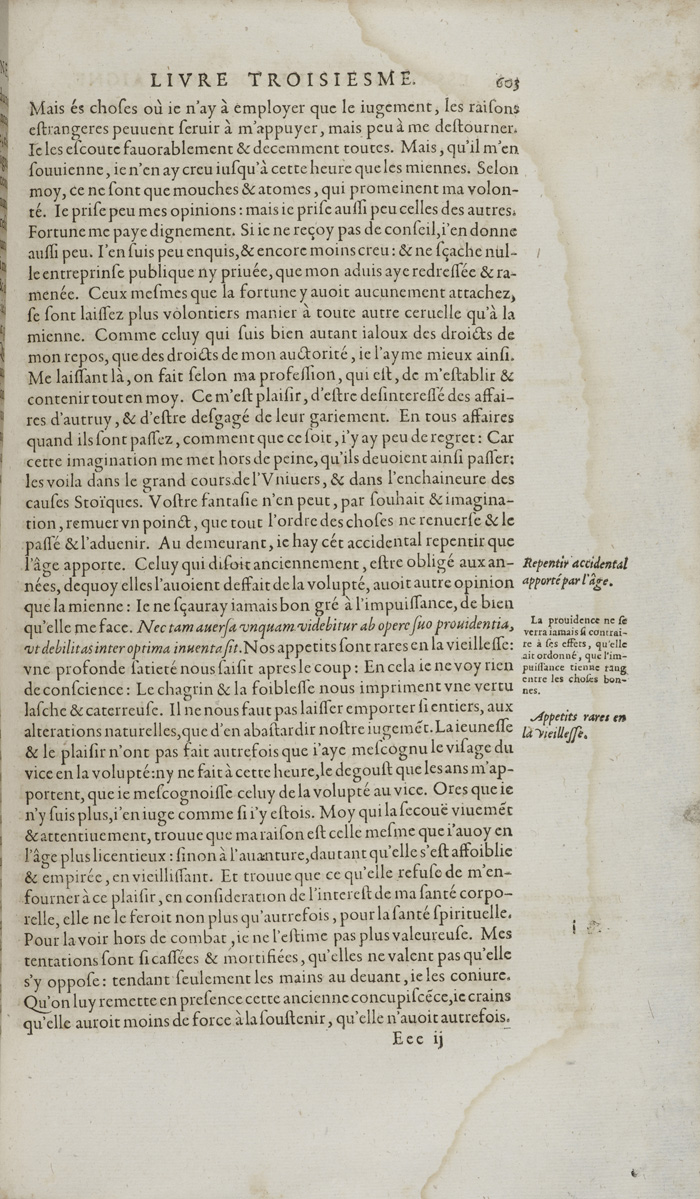 LIVRE TROISIESME. 603
Mais és choſes où ie n'ay à employer que le iugement, les raiſons
eſtrangeres peuuent ſeruir à m'appuyer, mais peu à me deſtourner.
Ie les eſcoute fauorablement & decemment toutes. Mais, qu'il m'en
ſouuienne, ie n'en ay creu iuſqu'à cette heure que les miennes. Selon
moy, ce ne ſont que mouches & atomes, qui promeinent ma volon-
té. Ie priſe peu mes opinions : mais ie priſe auſſi peu celles des autres.
Fortune me paye dignement. Si ie ne reçoy pas de conſeil, i'en donne
auſſi peu. I'en ſuis peu enquis, & encore moins creu : & ne ſçache nul-
le entreprinſe publique ny priuée, que mon aduis aye redreſſée & ra-
menée. Ceux meſmes que la fortune y auoit aucunement attachez,
ſe ſont laiſſez plus volontiers manier à toute autre ceruelle qu'à la
mienne. Comme celuy qui ſuis bien autant ialoux des droicts de
mon repos, que des droicts de mon auctorité, ie l'ayme mieux ainſi.
Me laiſſant là, on fait ſelon ma profeſſion, qui eſt, de m'eſtablir &
contenir tout en moy. Ce m'eſt plaiſir, d'eſtre deſintereſſé des affai-
res d'autruy, & d'eſtre deſgagé de leur gariement. En tous affaires
quand ils ſont paſſez, comment que ce ſoit, i'y ay peu de regret : Car
cette imagination me met hors de peine, qu'ils deuoient ainſi paſſer:
les voila dans le grand cours de l'Vniuers, & dans l'enchaineure des
cauſes Stoïques. Voſtre fantaſie n'en peut, par ſouhait & imagina-
tion, remuer vn poinct, que tout l'ordre des choſes ne renuerſe & le
paſſé & l'aduenir. Au demeurant, ie hay cét accidental repentir que
l'âge apporte. Celuy qui diſoit anciennement, eſtre obligé aux an-
nées, dequoy elles l'auoient deffait de la volupté, auoit autre opinion
que la mienne : Ie ne ſçauray iamais bon gré à l'impuiſſance, de bien
qu'elle me face. Nec tam auerſa vnquam videbitur ab opere ſuo prouidentia,
vt debilitas inter optima inuenta ſit. Nos appetits ſont rares en la vieilleſſe:
vne profonde ſatieté nous ſaiſit apres le coup : En cela ie ne voy rien
de conſcience : Le chagrin & la foibleſſe nous impriment vne vertu
laſche & caterreuſe. Il ne nous faut pas laiſſer emporter ſi entiers, aux
alterations naturelles, que d'en abaſtardir noſtre iugemēt. La ieuneſſe
& le plaiſir n'ont pas fait autrefois que i'aye meſcognu le viſage du
vice en la volupté: ny ne fait à cette heure, le degouſt que les ans m'ap-
portent, que ie meſcognoiſſe celuy de la volupté au vice. Ores que ie
n'y ſuis plus, i'en iuge comme ſi i'y eſtois. Moy qui la ſecouë viuemēt
& attentiuement, trouue que ma raiſon eſt celle meſme que i'auoy en
l'âge plus licentieux : ſinon à l'auanture, dautant qu'elle s'eſt affoiblie
& empirée, en vieilliſſant. Et trouue que ce qu'elle refuſe de m'en-
fourner à ce plaiſir, en conſideration de l'intereſt de ma ſanté corpo-
relle, elle ne le feroit non plus qu'autrefois, pour la ſanté ſpirituelle.
Pour la voir hors de combat, ie ne l'eſtime pas plus valeureuſe. Mes
tentations ſont ſi caſſées & mortifiées, qu'elles ne valent pas qu'elle
s'y oppoſe : tendant ſeulement les mains au deuant, ie les coniure.
Qu'on luy remette en preſence cette ancienne concupiſcēce, ie crains
qu'elle auroit moins de force à la ſouſtenir, qu'elle n'auoit autrefois.
Eee ij
Repentir accidental
apporté par l'âge.
La prouidence ne ſe
verra iamais ſi contrai-
re à ſes effets, qu'elle
ait ordonné, que l'im-
puiſſance tienne rang
entre les choſes bon-
nes.
Appetits rares en
la vieilleſſe.